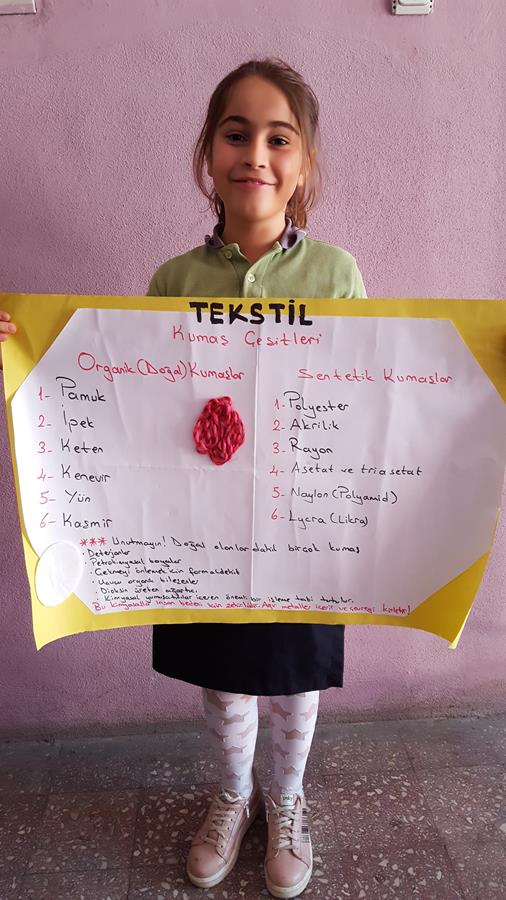 TEKSTİL
Kumaş Çeşitleri
Organik (Doğal) Kumaşlar
1- Pamuk
2- İpek
3- Keten
4- Kenevir
5- Yün
6- Kaşmir
Sentetik Kumaşlar
1- Polyester
2- Akrilik
3- Rayon
4- Asetat ve triasetat
5- Naylon (Polyamid)
6- Lycra (Likra)
*** Unutmayın! Doğal olanlar dahil birçok kumaş
· Deterjanlar
· Petrokimyasal boyalar
· Çekmeyi önlemek için formaldehit
· Uçucu organik bileşenler
· Dioksin üreten ağartıcı
· Kimyasal yumuşatıcılar içeren önemli bir işleme tabi tutulur.
Bu kimyasallar insan bedeni için zehirlidir. Ağır metaller içerir ve çevreyi kirletir!